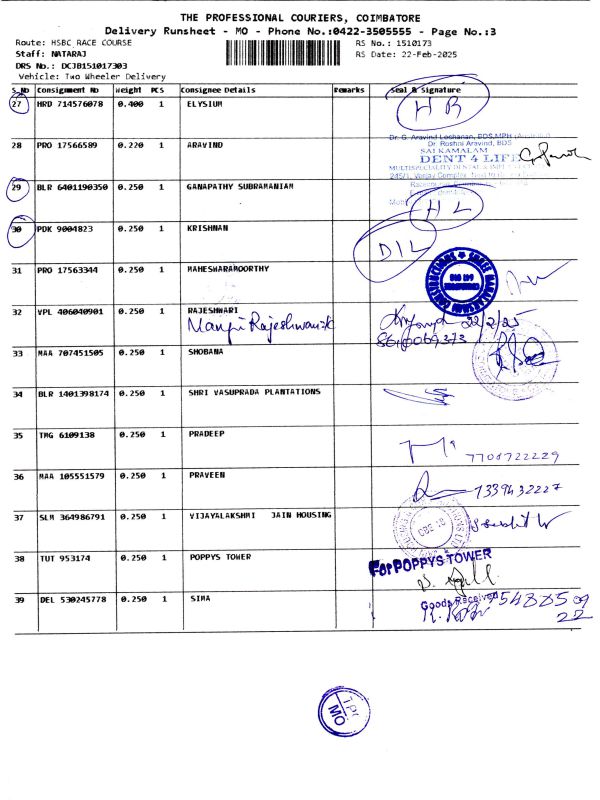 THE PROFESSIONAL COURIERS, COIMBATORE
Delivery Runsheet - MO - Phone No.:0422-3505555 - Page No.:3
Route: HSBC RACE COURSE RS No.: 1510173
Staff: NATARAJ RS Date: 22-Feb-2025
DRS No.: DCJB151017303
Vehicle: Two Wheeler Delivery
S.No Consignment No Weight PCS Consignee Details Remarks Seal & Signature
27 HRD 714576078 0.400 1 ELYSIUM HR
28 PRO 17566589 0.220 1 ARAVIND
Dr. G. Aravind Loshanan, BDS,MPH
Dr. Roshni Aravind, BDS
SAI KAMALAM
DENT 4 LIFE
29 BLR 6401190350 0.250 1 GANAPATHY SUBRAMANIAM HL
30 PDK 9004823 0.250 1 KRISHNAN DIL
31 PRO 17563344 0.250 1 MAHESWARAMOORTHY
32 VPL 406040901 0.250 1 RAJESHWARI 22/2/25
33 MAA 707451505 0.250 1 SHOBANA
34 BLR 1401398174 0.250 1 SHRI VASUPRADA PLANTATIONS
35 TMG 6109138 0.250 1 PRADEEP 7708722229
36 MAA 105551579 0.250 1 PRAVEEN
37 SLM 364986791 0.250 1 VIJAYALAKSHMI JAIN HOUSING
38 TUT 953174 0.250 1 POPPYS TOWER For POPPYS TOWER
39 DEL 530245778 0.250 1 SIMA Goods Received
TPC
MO